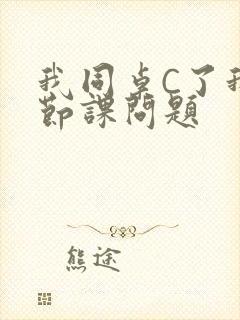 我同桌C了我
節課問題
熊途